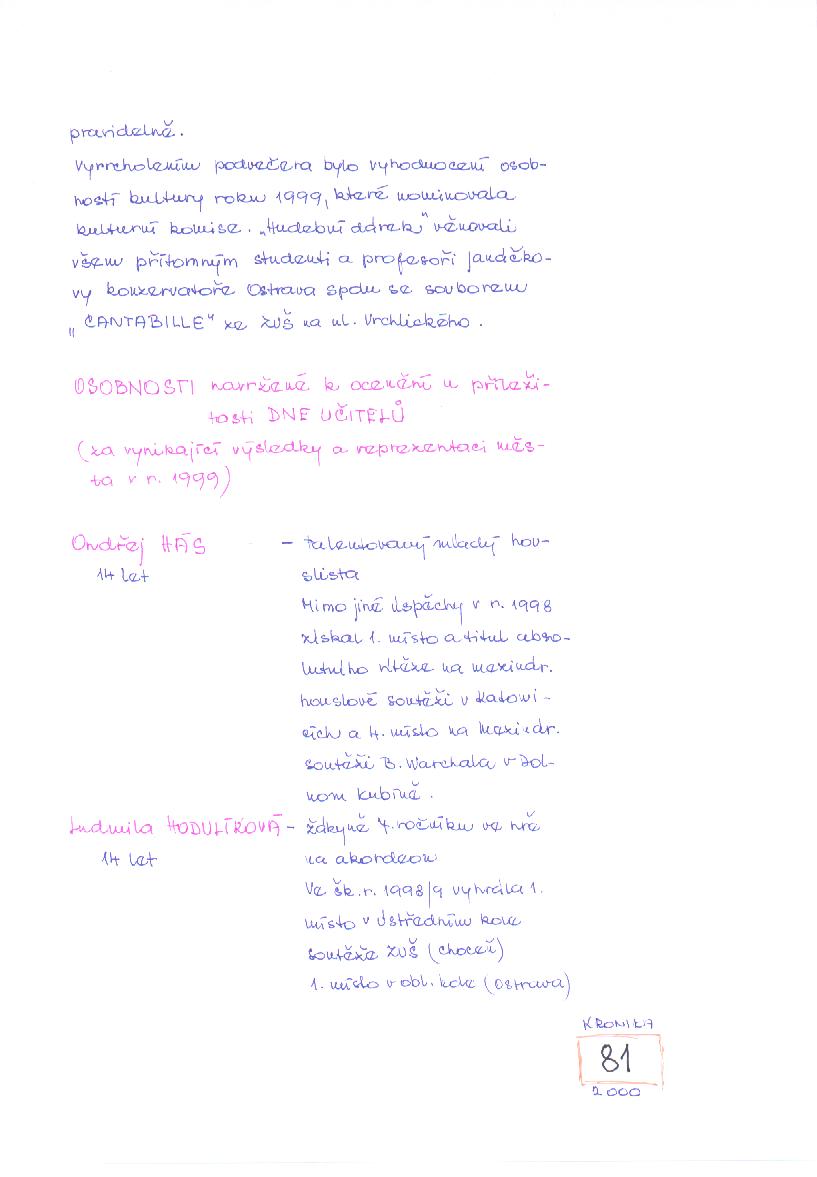 pravidelně.
Vyvrcholením podvečera bylo vyhodnocení osob-
ností kultury roku 1999, které nominovala
kulturní komise. „Hudební dárek" věnovali
všem přítomným studenti a profesoři Janáčko-
vy konzervatoře Ostrava spolu se souborem
„CANTABILLE" ze ZUŠ na ul. Vrchlického.
OSOBNOSTI navržené k ocenění u příleži-
tosti DNE UČITELŮ
(za vynikající výsledky a reprezentaci měs-
ta v r. 1999)
Ondřej HÁS - talentovaný mladý hou-
14 let slista
Mimo jiné úspěchy v r. 1998
získal 1. místo a titul abso-
lutního vítěze na mezinár.
houslové soutěži v Katowi-
cích a 4. místo na mezinár.
soutěži B. Warchala v Dol-
nom Kubíně.
Ludmila HODULÍKOVÁ - žákyně 7. ročníku ve hře
14 let na akordeon
Ve šk. r. 1998/9 vyhrála 1.
místo v ústředním kole
soutěže ZUŠ (Choceň)
1. místo v obl. kole (Ostrava)
KRONIKA
81
2000